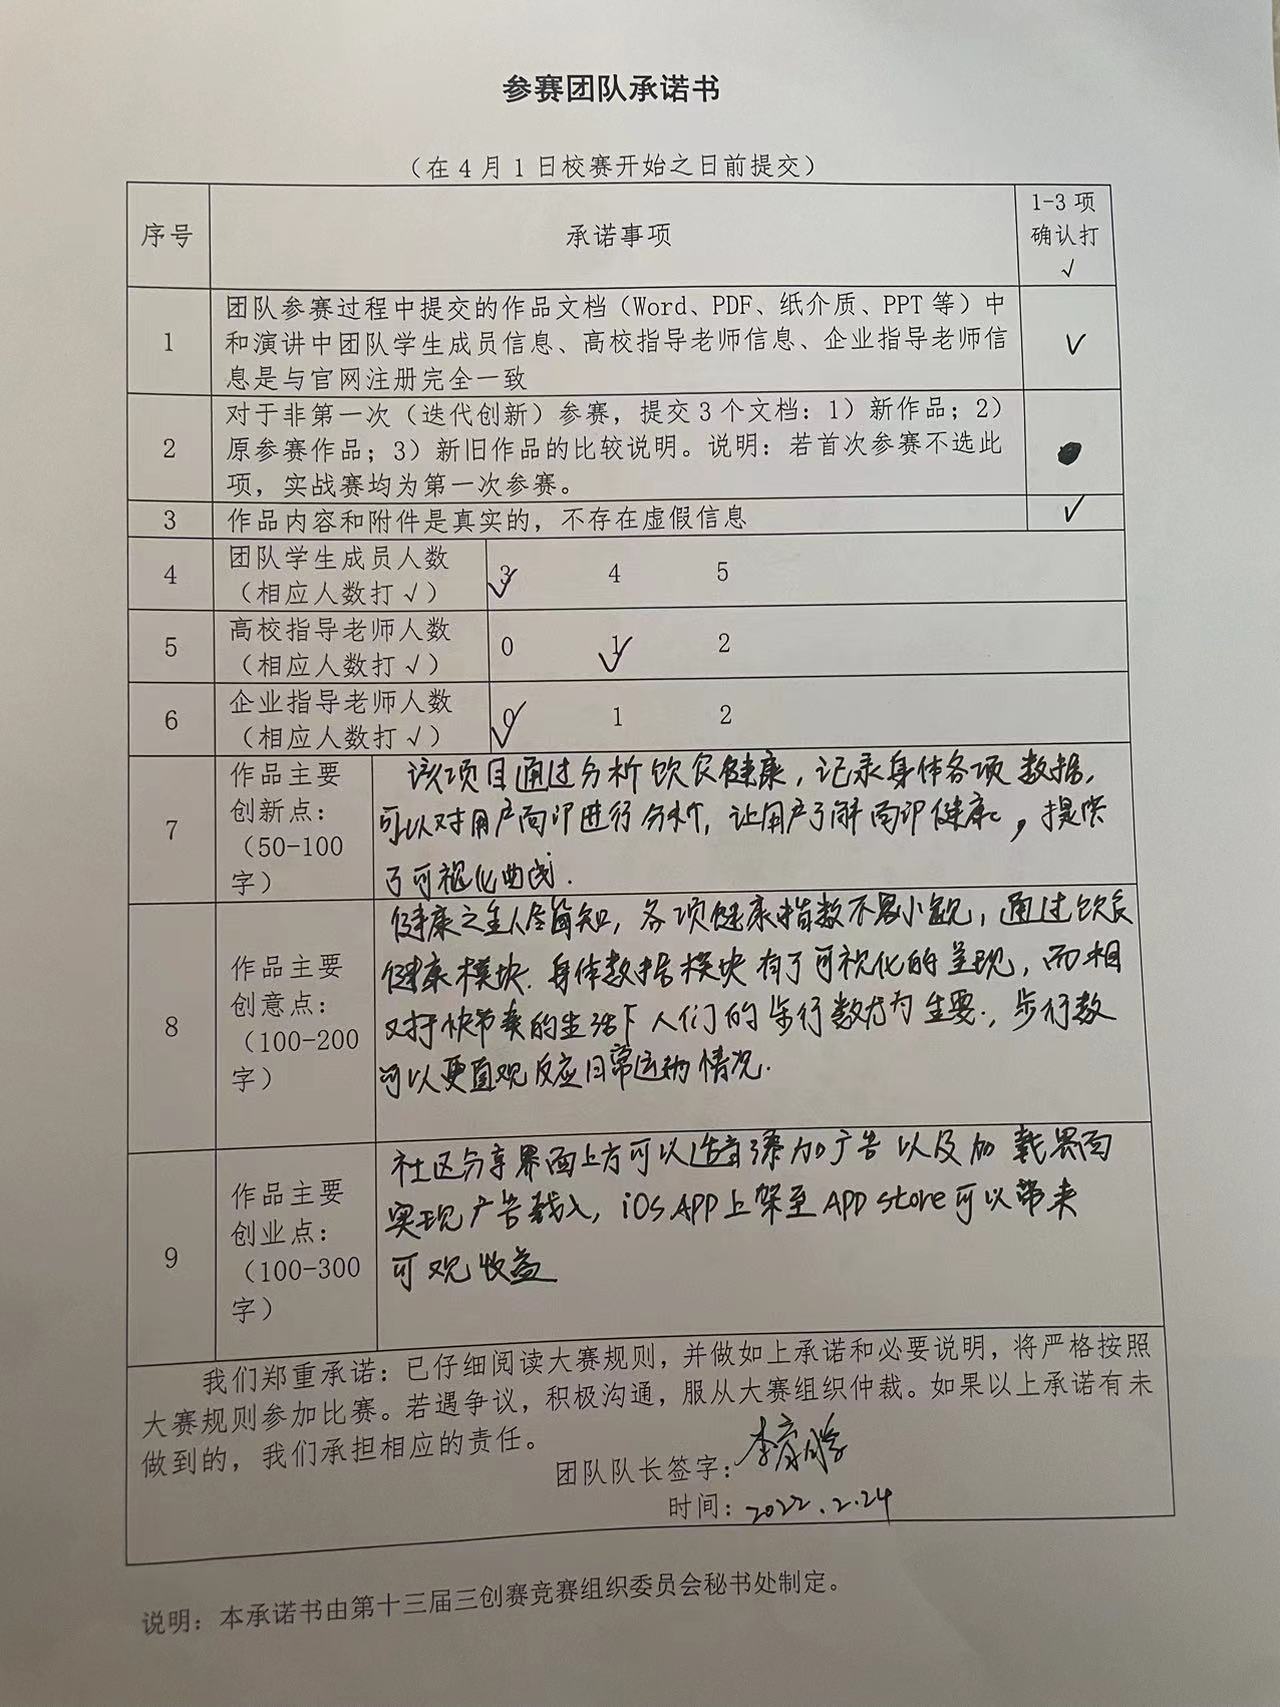 参赛团队承诺书
（在4月1日校赛开始之日前提交）
序号
承诺事项
1-3 项
确认打
√
1
团队参赛过程中提交的作品文档（Word、PDF、纸介质、PPT 等）中
和演讲中团队学生成员信息、高校指导老师信息、企业指导老师信
息是与官网注册完全一致
√
2
对于非第一次（迭代创新）参赛，提交3个文档：1）新作品；2）
原参赛作品；3）新旧作品的比较说明。说明：若首次参赛不选此
项，实战赛均为第一次参赛。
3
作品内容和附件是真实的，不存在虚假信息
√
4
团队学生成员人数
（相应人数打√）
3 √ 4 5
5
高校指导老师人数
（相应人数打√）
0 1 √ 2
6
企业指导老师人数
（相应人数打√）
0 √ 1 2
7
作品主要
创新点：
（50-100
字）
该项目通过分析饮食健康，记录身体各项数据，
可以对用户面部进行分析，让用户了解面部健康，提供
了可视化曲线.
8
作品主要
创意点：
（100-200
字）
健康之 人尽皆知，各项健康指数不容小觑，通过饮食
健康模块、身体数据模块有了可视化的呈现，而相
对于快节奏的生活下人们的步行数尤为重要.，步行数
可以更直观反应日常运动情况.
9
作品主要
创业点：
（100-300
字）
社区分享界面上方可以 添加广告以及加载界面
实现广告载入，iOS APP上架至APP Store可以带来
可观收益
我们郑重承诺：已仔细阅读大赛规则，并做如上承诺和必要说明，将严格按照
大赛规则参加比赛。若遇争议，积极沟通，服从大赛组织仲裁。如果以上承诺有未
做到的，我们承担相应的责任。
团队队长签字：李
时间：2022.2.24
说明：本承诺书由第十三届三创赛竞赛组织委员会秘书处制定。